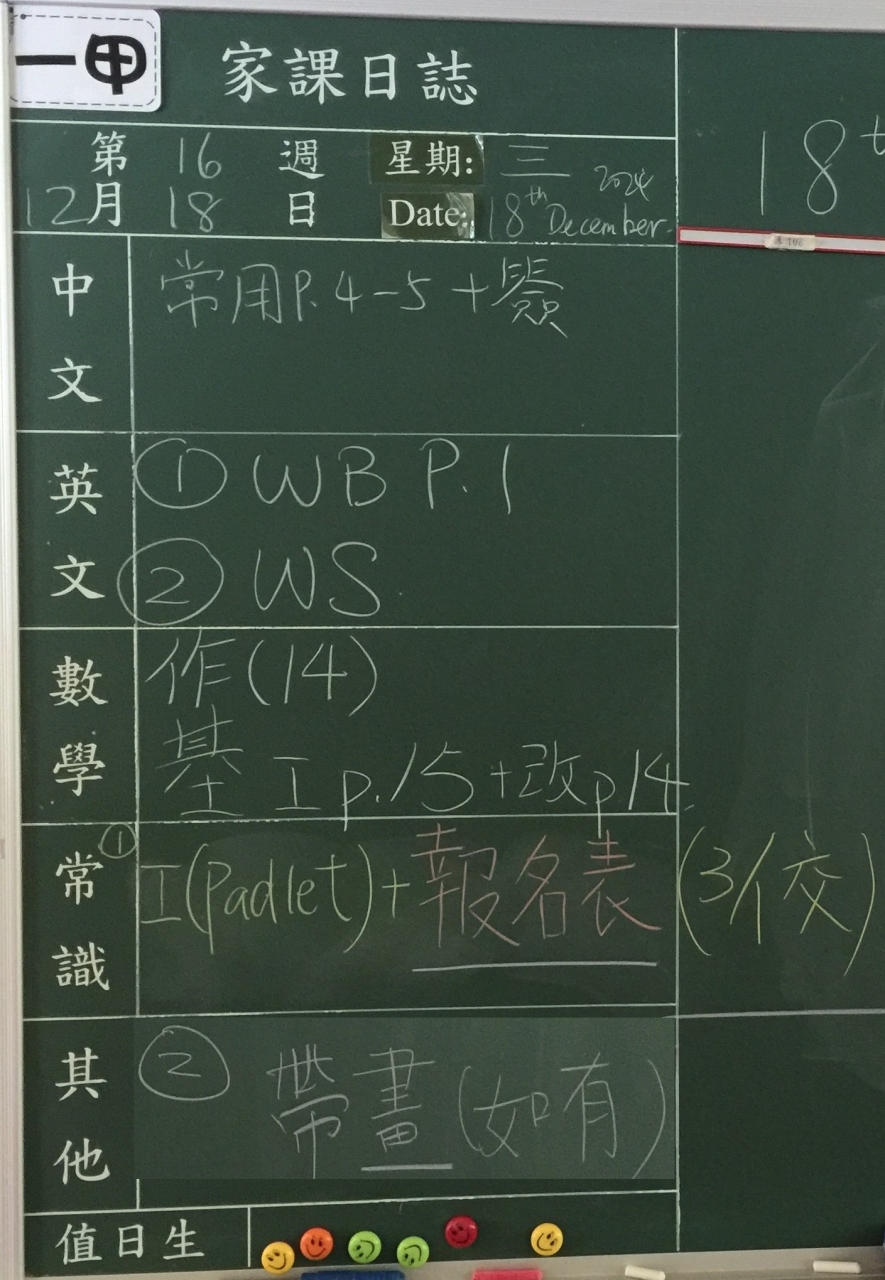 一甲
家課日誌
第 16 週 星期: 三
12月 18 日 Date: 18th December 2024
18t
中文
常用P.4-5 +
英文
① WB P.1
② WS
數學
作(14)
基 工 p.15 +改p14
常識
① 工(Padlet)+報名表 (3/1交)
其他
② 帶畫(如有)
值日生